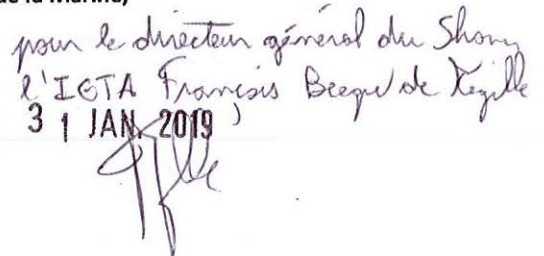 de la Marine,
pour le directeur général du Shom,
l'IGTA François Becque de
31 JAN. 2019